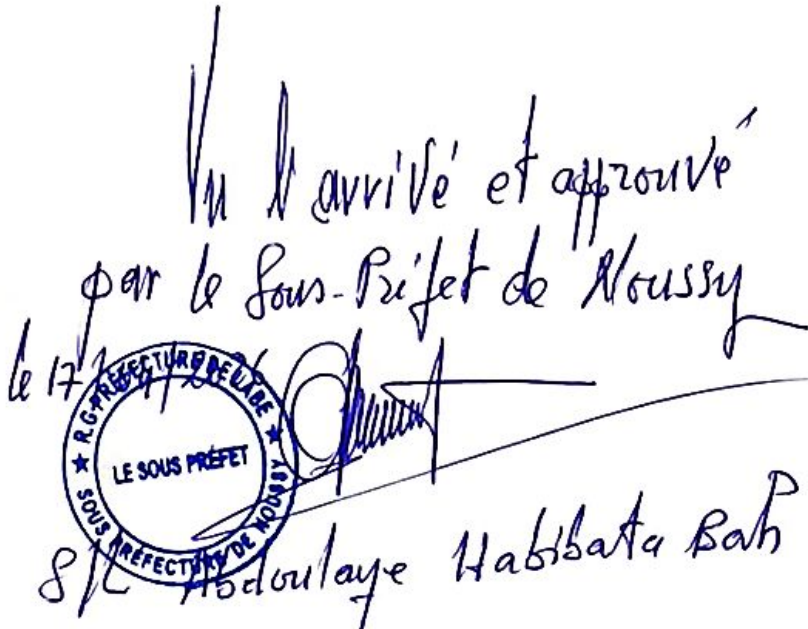 Vu l'arrivé et approuvé
par le Sous-Préfet de Noussy
le 17
R.G-PRÉFECTURE DE LABE
LE SOUS PRÉFET
SOUS PRÉFECTURE DE NOUSSY
Abdoulaye Habibata Bah